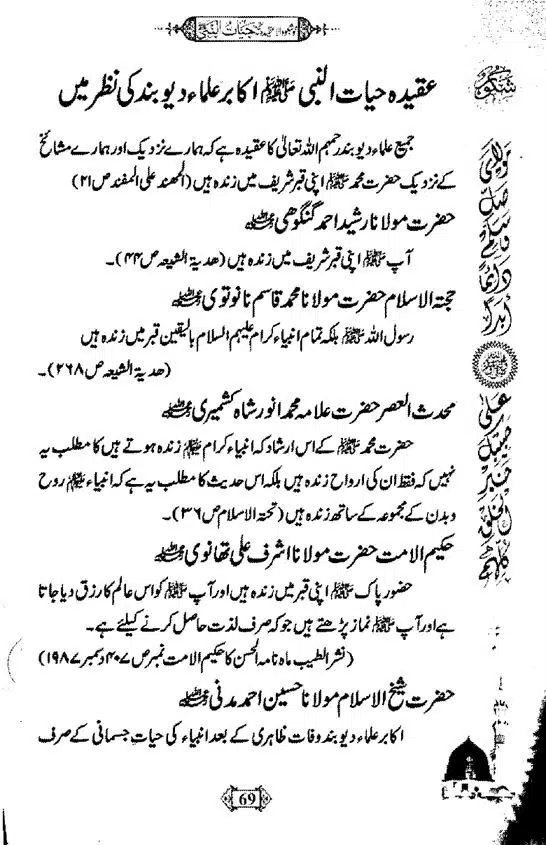 حیات النبی ﷺ
عقیدہ حیات النبی ﷺ اکابر علماء دیوبند کی نظر میں
جمیع علماء دیوبند رحمہم اللہ تعالیٰ کا عقیدہ ہے کہ ہمارے نزدیک اور ہمارے مشائخ
کے نزدیک حضرت محمد ﷺ اپنی قبر شریف میں زندہ ہیں (المھند علی المفند ص ۲۱)
حضرت مولانا رشید احمد گنگوھی رحمہ اللہ
آپ ﷺ اپنی قبر شریف میں زندہ ہیں (ھدیۃ الشیعہ ص ۴۴)۔
حجۃ الاسلام حضرت مولانا محمد قاسم نانوتوی رحمہ اللہ
رسول اللہ ﷺ بلکہ تمام انبیاء کرام علیہم السلام بالیقین قبر میں زندہ ہیں
(ھدیۃ الشیعہ ص ۲۶۸)۔
محدث العصر حضرت علامہ محمد انور شاہ کشمیری رحمہ اللہ
حضرت محمد ﷺ کے اس ارشاد کہ انبیاء کرام ﷺ زندہ ہوتے ہیں کا مطلب یہ
نہیں کہ فقط ان کی ارواح زندہ ہیں بلکہ اس حدیث کا مطلب یہ ہے کہ انبیاء ﷺ روح
و بدن کے مجموعہ کے ساتھ زندہ ہیں (تحتہ الاسلام ص ۳۶)۔
حکیم الامت حضرت مولانا اشرف علی تھانوی رحمہ اللہ
حضور پاک ﷺ اپنی قبر میں زندہ ہیں اور آپ ﷺ کو اس عالم کا رزق دیا جاتا
ہے اور آپ ﷺ نماز پڑھتے ہیں جو کہ صرف لذت حاصل کرنے کیلئے ہے۔
(نشر الطیب ماہ نامہ الحسن کا حکیم الامت نمبر ص ۴۰۷ دسمبر ۱۹۸۷)
حضرت شیخ الاسلام مولانا حسین احمد مدنی رحمہ اللہ
اکابر علماء دیوبند وفات ظاہری کے بعد انبیاء کی حیات جسمانی کے صرف
69
مولای صل وسلم دائما ابدا
علی حبیبک خیر الخلق کلھم